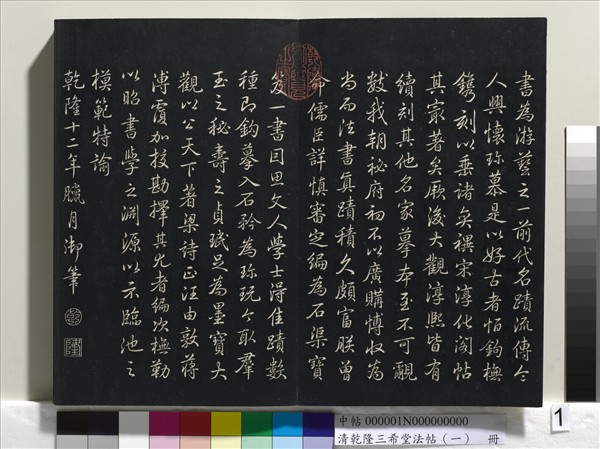 書為游藝之一前代名蹟流傳令
人興懷珍慕是以好古者恆鉤橅
鐫刻以垂諸久㩀宋淳化閣帖
其最著矣厥後大觀淳熙皆有
續刻其他名家摹本至不可覼
數我朝秘府初不以廣購博收為
尚而法書真蹟積久頗富朕曾
命儒臣詳慎審定編為石渠寶
笈一書因思文人學士得佳蹟數
種即鉤摹入石矜為珍玩今取羣
玉之秘壽之貞珉足為墨寶大
觀以公天下著梁詩正汪由敦蔣
溥覆加挍勘擇其尤者編次橅勒
以昭書學之淵源以示臨池之
模範特諭
乾隆十二年臘月御筆
乾
隆
中帖 000001N000000000
清乾隆三希堂法帖(一) 冊
1